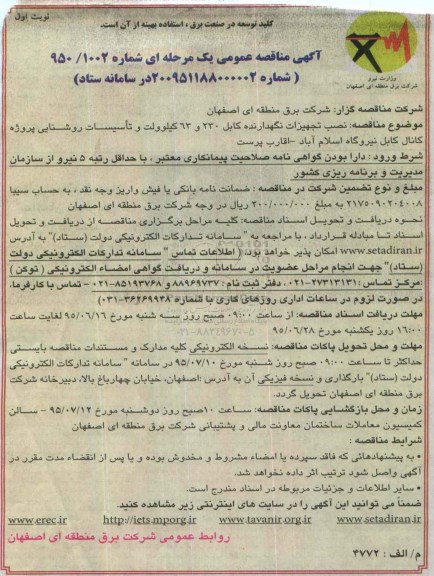 کلید توسعه در صنعت برق ، استفاده بهینه از آن است.
نوبت اول
وزارت نیرو
شرکت برق منطقه ای اصفهان
آگهی مناقصه عمومی یک مرحله ای شماره ۹۵۰/۱۰۰۲
( شماره ۲۰۰۹۵۱۱۸۸۰۰۰۰۰۲ در سامانه ستاد)
شرکت مناقصه گزار: شرکت برق منطقه ای اصفهان
موضوع مناقصه: نصب تجهیزات نگهدارنده کابل ۲۳۰ و ۶۳ کیلوولت و تأسیسات روشنایی پروژه
کانال کابل نیروگاه اسلام آباد –اقارب پرست
شرط ورود : دارا بودن گواهی نامه صلاحیت پیمانکاری معتبر ، با حداقل رتبه ۵ نیرو از سازمان
مدیریت و برنامه ریزی کشور
مبلغ و نوع تضمین شرکت در مناقصه : ضمانت نامه بانکی یا فیش واریز وجه نقد ، به حساب سیبا
۲۱۷۵۰۹۰۲۰۴۰۰۸ به مبلغ ۲۰۰/۰۰۰/۰۰۰ ریال در وجه شرکت برق منطقه ای اصفهان
نحوه دریافت و تحویل اسناد مناقصه: کلیه مراحل برگزاری مناقصه از دریافت و تحویل
اسناد تا مبادله قرارداد ، با مراجعه به " سامانه تدارکات الکترونیکی دولت (ستاد)" به آدرس
www.setadiran.ir امکان پذیر خواهد بود. ( اطلاعات تماس " سامانه تدارکات الکترونیکی دولت
(ستاد)" جهت انجام مراحل عضویت در سامانه و دریافت گواهی امضاء الکترونیکی ( توکن )
:مرکز تماس :۲۷۳۱۳۱۳۱-۰۲۱ ، دفتر ثبت نام : ۸۸۹۶۹۷۳۷ و ۸۵۱۹۳۷۶۸-۰۲۱ – تماس با کارفرما،
در صورت لزوم در ساعات اداری روزهای کاری با شماره ۳۶۲۶۹۹۳۸-۰۳۱)
مهلت دریافت اسناد مناقصه: از ساعت ۰۹:۰۰ صبح روز سه شنبه مورخ ۹۵/۰۶/۱۶ لغایت ساعت
۱۶:۰۰ روز یکشنبه مورخ ۹۵/۰۶/۲۸
مهلت و محل تحویل پاکات مناقصه: نسخه الکترونیکی کلیه مدارک و مستندات مناقصه بایستی
حداکثر تا ساعت ۰۹:۰۰ صبح روز شنبه مورخ ۹۵/۰۷/۱۰ در سامانه " سامانه تدارکات الکترونیکی
دولت (ستاد)" بارگذاری و نسخه فیزیکی آن به آدرس :اصفهان، خیابان چهارباغ بالا، دبیرخانه شرکت
برق منطقه ای اصفهان تحویل گردد.
زمان و محل بازگشایی پاکات مناقصه: ساعت ۱۰صبح روز دوشنبه مورخ ۹۵/۰۷/۱۲ – سالن
کمیسیون معاملات ساختمان معاونت مالی و پشتیبانی شرکت برق منطقه ای اصفهان
شرایط مناقصه :
• به پیشنهاداتی که فاقد سپرده یا امضاء مشروط و مخدوش بوده و یا پس از انقضاء مدت مقرر در
آگهی واصل شود ترتیب اثر داده نخواهد شد.
• سایر اطلاعات و جزئیات مربوطه در اسناد مندرج است.
ضمناً می توانید این آگهی را در سایت های اینترنتی زیر مشاهده کنید.
www.erec.ir http://iets.mporg.ir www.tavanir.org.ir www.setadiran.ir
روابط عمومی شرکت برق منطقه ای اصفهان
م/ الف : ۳۷۷۲